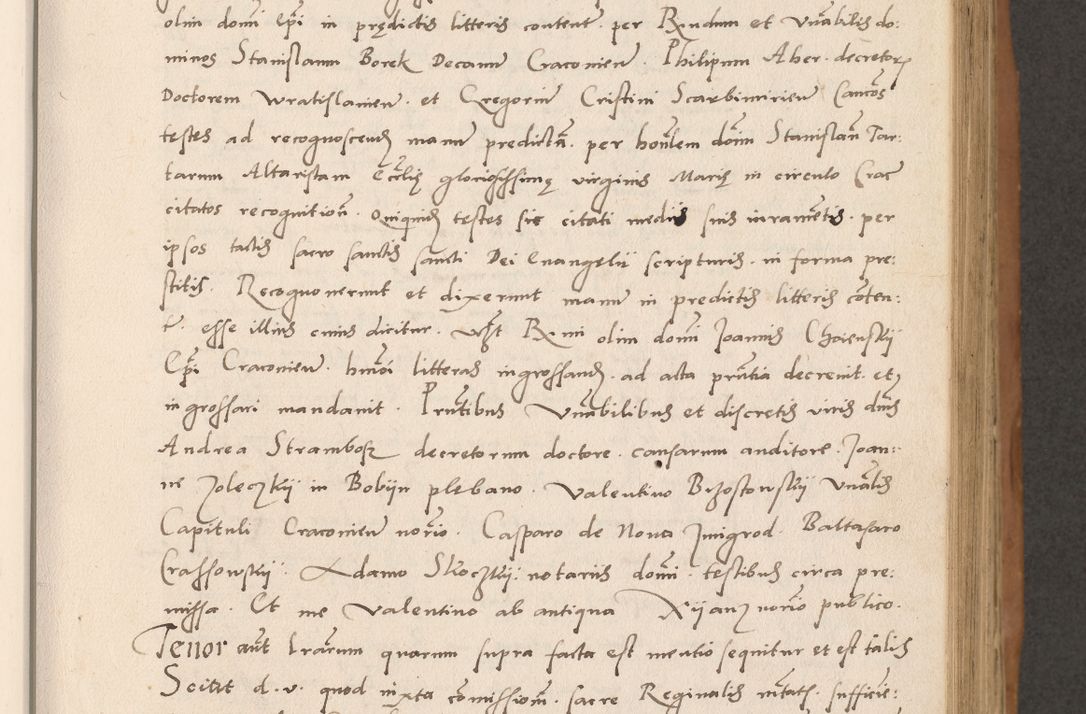 olim domi Epi in prędictis litteris content. per Rndum et Vnabilis do:
minos Stanislaum Borek Decanu Craconien. Philipum Aber. decretor
Doctorem Wratislauien. et Gregoriu Cristini Scarbimirien Canco͞s
testes ad recognoscend manu predictā. per hon̄lem dom̄ Stanislau Tar:
tarum Altaristam Ecclię gloriosissimę virginis Marię in circulo Crac
citatos recognition. Qui quid testes sic citati mediis suis iuramentis. per
ipsos tactis sacro sanctis sancti Dei Euangelii scripturis. in forma pre:
stitis. Recognouerunt et dixerunt manu in predictis litteris conten:
t. esse illius cuius dicitur. vcst Rmi olim domi Joannis Choienskij
Epi Craconien. hmoi litteras ingrossand. ad acta prntia decreuit. et
in grossari mandauit. Prntibus Vnabilibus et discretis viris dnis
Andrea Strambosz decretorum doctore. causarum auditore. Joan:
ne Zoleczkij in Bobijn plebano. Valentino Brzostowskij Vnabilis
Capituli Craconien norio. Casparo de Noua Zmigrod. Baltasaro
Crassowskij. Adamo Skoczkij. notariis domi. testibus circa pre:
missa. Et me Valentino ab antiqua Xijanz norio publico.
Tenor aut lrarum quarum supra facta est mentio sequitur et est talis
Sciat d. v. quod iuxta comissionem sacre Reginalis mtats. sufficie: